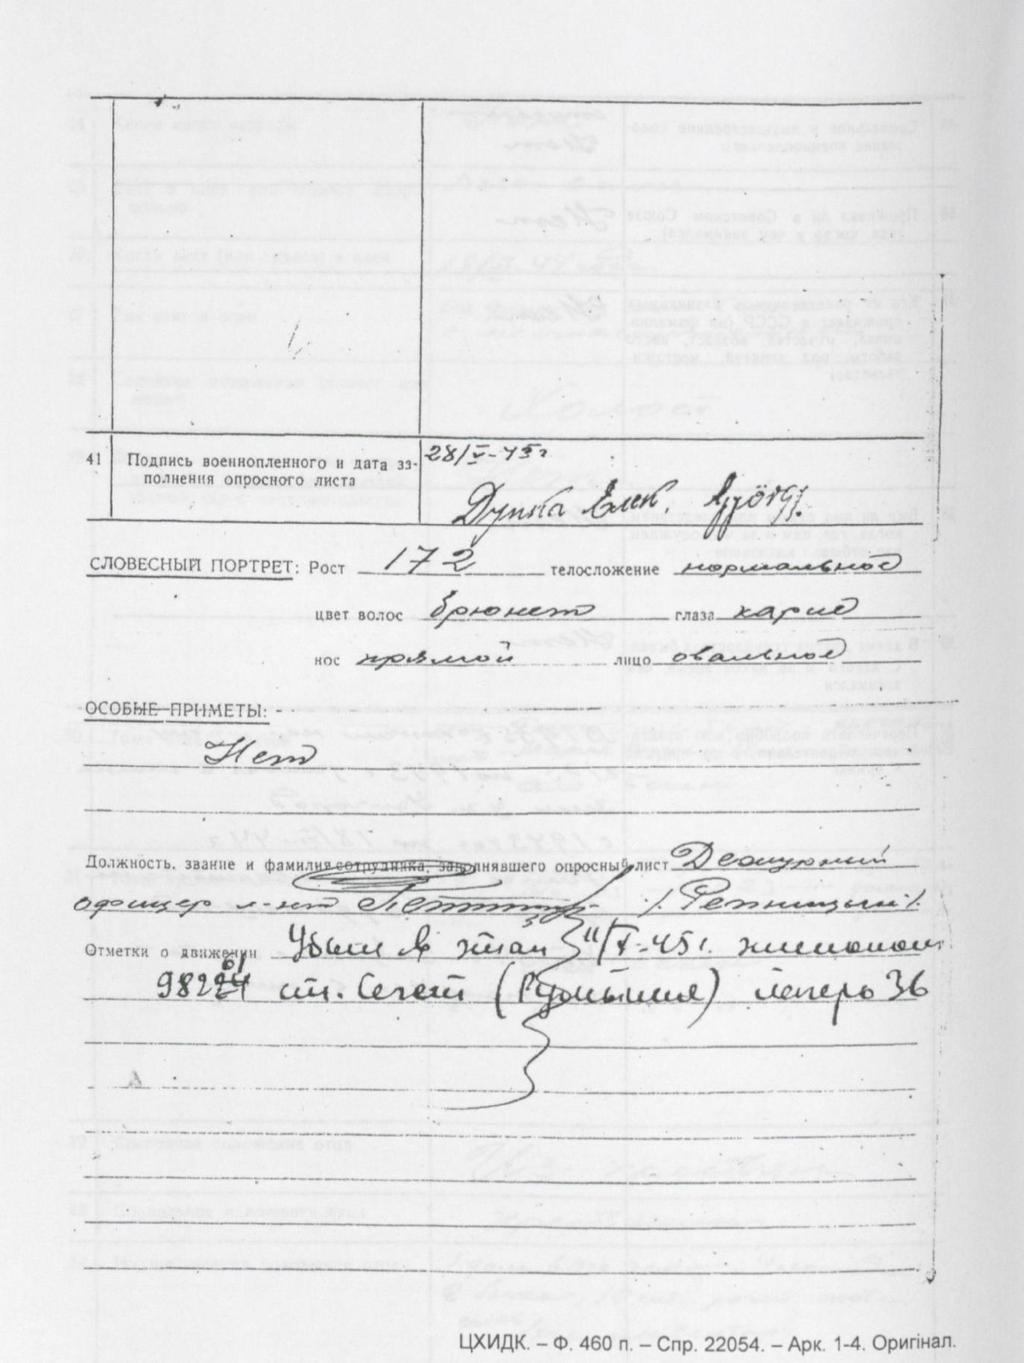 28/V-45г
41 Подпись военнопленного и дата за-
полнения опросного листа
Дупка Елек. György.
СЛОВЕСНЫЙ ПОРТРЕТ: Рост 172 телосложение нормальное
цвет волос брюнет глаза карие
нос прямой лицо овальное
ОСОБЫЕ ПРИМЕТЫ:
Нет
Должность, звание и фамилия сотрудника, заполнявшего опросный лист Дежурный
офицер л-нт /Репницкий/
Отметки о движении Убыл в этап "/V-45г. эшелоном
982 ст. Сегет (Румыния) лагерь 36
ЦХИДК. – Ф. 460 п. – Спр. 22054. – Арк. 1-4. Оригінал.